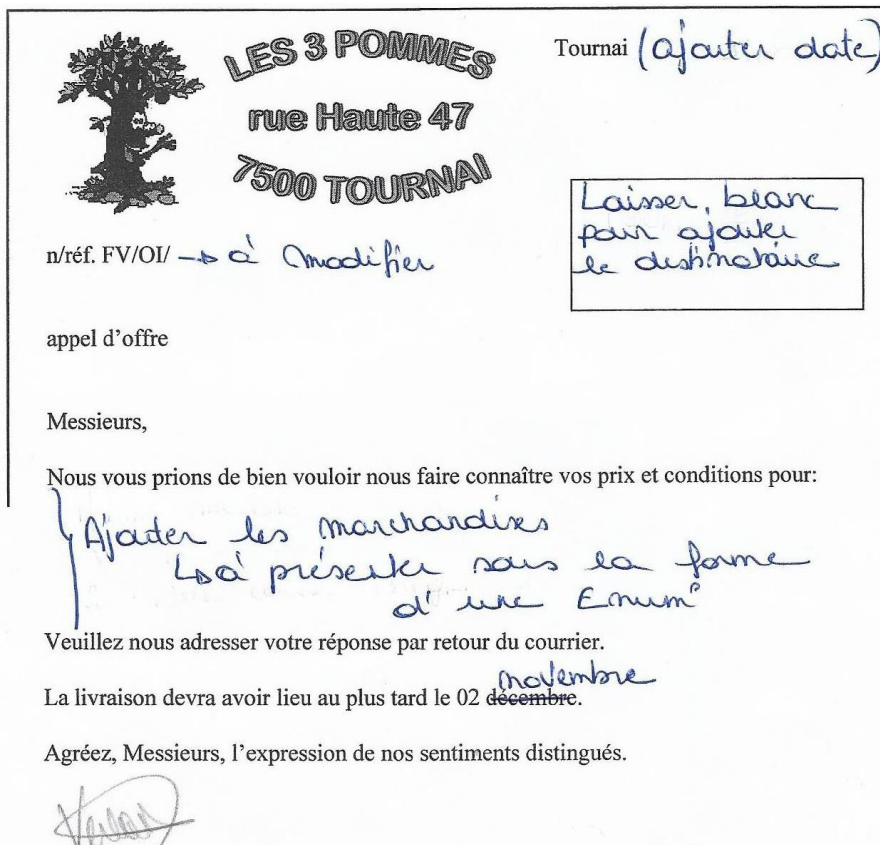 LES 3 POMMES
rue Haute 47
7500 TOURNAI
Tournai (ajouter date)
Laisser, blanc
pour ajouter
le destinataire
n/réf. FV/OI/ → à modifier
appel d'offre
Messieurs,
Nous vous prions de bien vouloir nous faire connaître vos prix et conditions pour:
Ajouter les marchandises
↳ à présenter sous la forme
d'une Enum°
Veuillez nous adresser votre réponse par retour du courrier.
novembre
La livraison devra avoir lieu au plus tard le 02 décembre.
Agréez, Messieurs, l'expression de nos sentiments distingués.